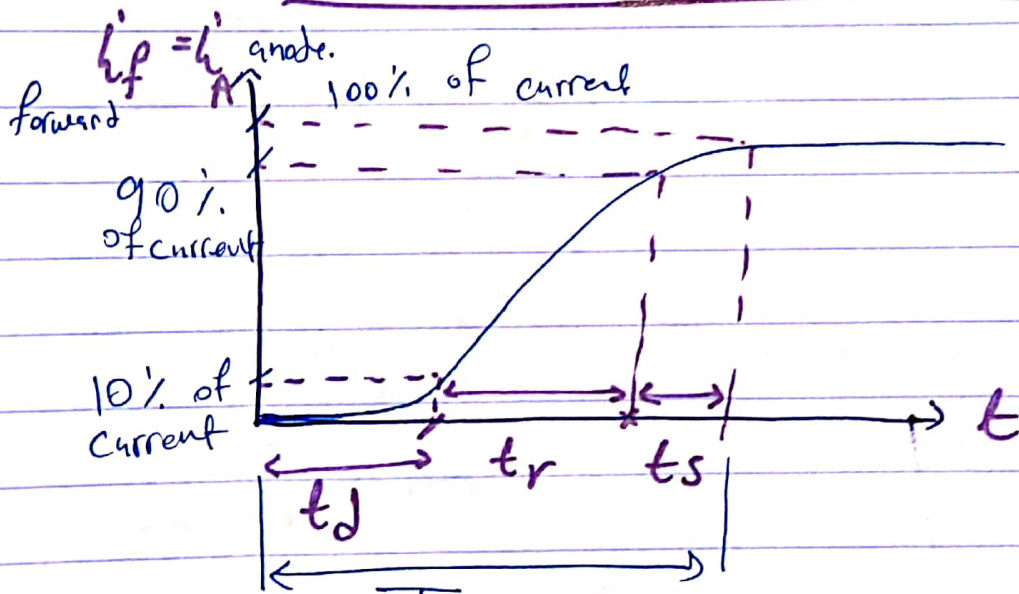 i_f = i_A anode.
forward
100% of current
90%
of current
10% of
current
t
t_d
t_r
t_s